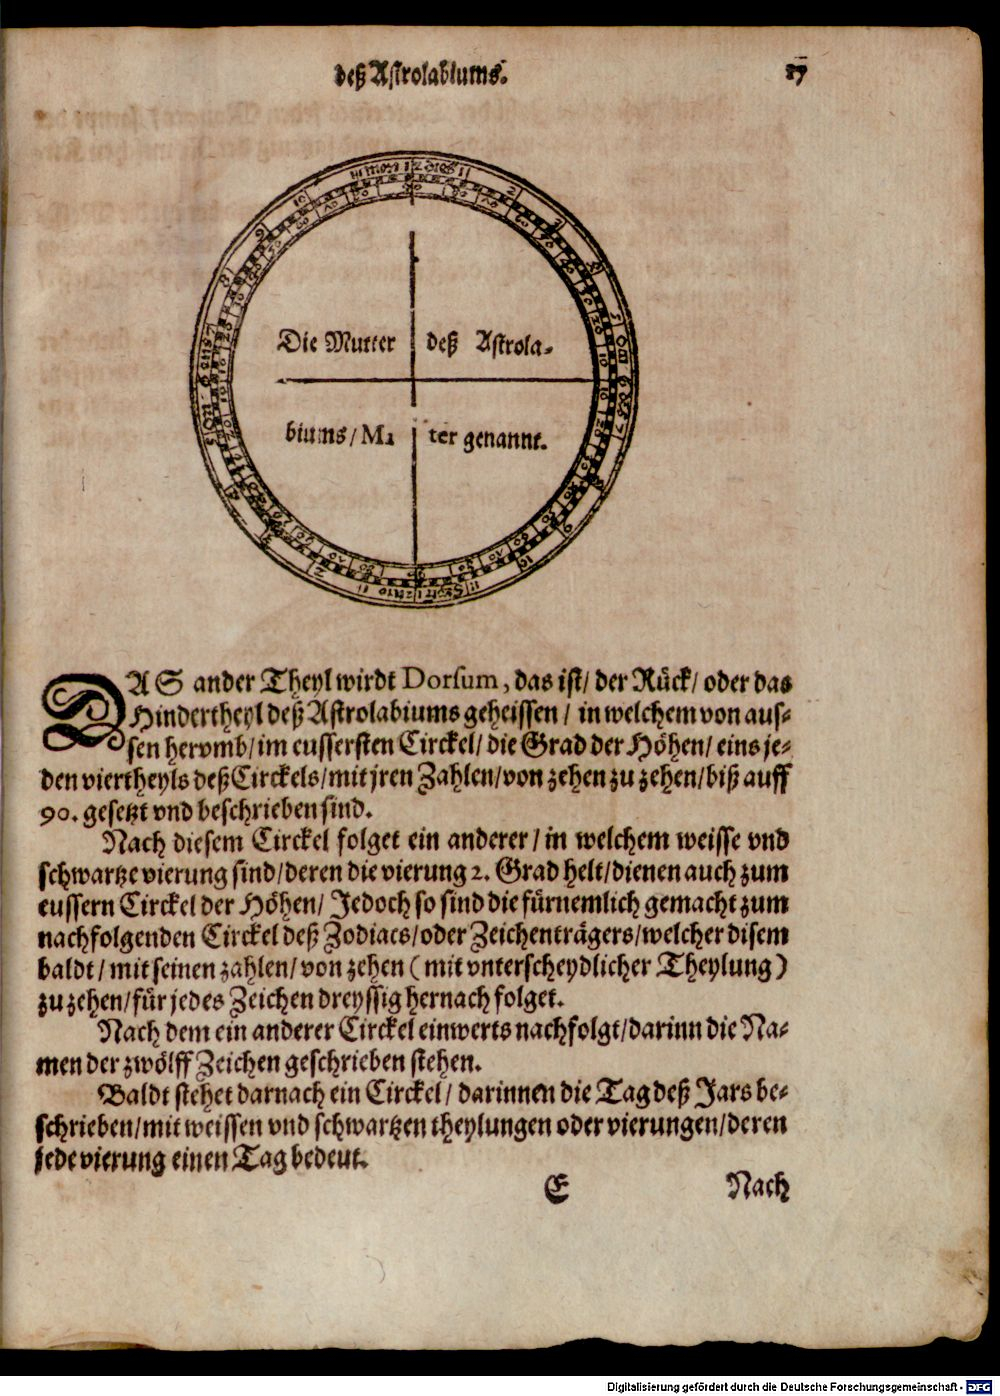 deß Astrolabiums. 17
Die Mutter deß Astrola-
biums / Ma ter genannt.
DAS ander Theyl wirdt Dorsum, das ist / der Rück / oder das
Hindertheyl deß Astrolabiums geheissen / in welchem von aus-
sen hervmb / im eussersten Circkel / die Grad der Höhen / eins je-
den viertheyls deß Circkels / mit jren Zahlen / von zehen zu zehen / biß auff
90. gesetzt vnd beschrieben sind.
Nach diesem Circkel folget ein anderer / in welchem weisse vnd
schwartze vierung sind / deren die vierung 2. Grad helt / dienen auch zum
eussern Circkel der Höhen / Jedoch so sind die fürnemlich gemacht zum
nachfolgenden Circkel deß Zodiacs / oder Zeichenträgers / welcher disem
baldt / mit seinen zahlen / von zehen ( mit vnterscheydlicher Theylung )
zu zehen / für jedes Zeichen dreyssig hernach folget.
Nach dem ein anderer Circkel einwerts nachfolgt / darinn die Na-
men der zwölff Zeichen geschrieben stehen.
Baldt stehet darnach ein Circkel / darinnen die Tag deß Jars be-
schrieben / mit weissen vnd schwartzen theylungen oder vierungen / deren
jede vierung einen Tag bedeut.
E Nach
Digitalisierung gefördert durch die Deutsche Forschungsgemeinschaft - DFG